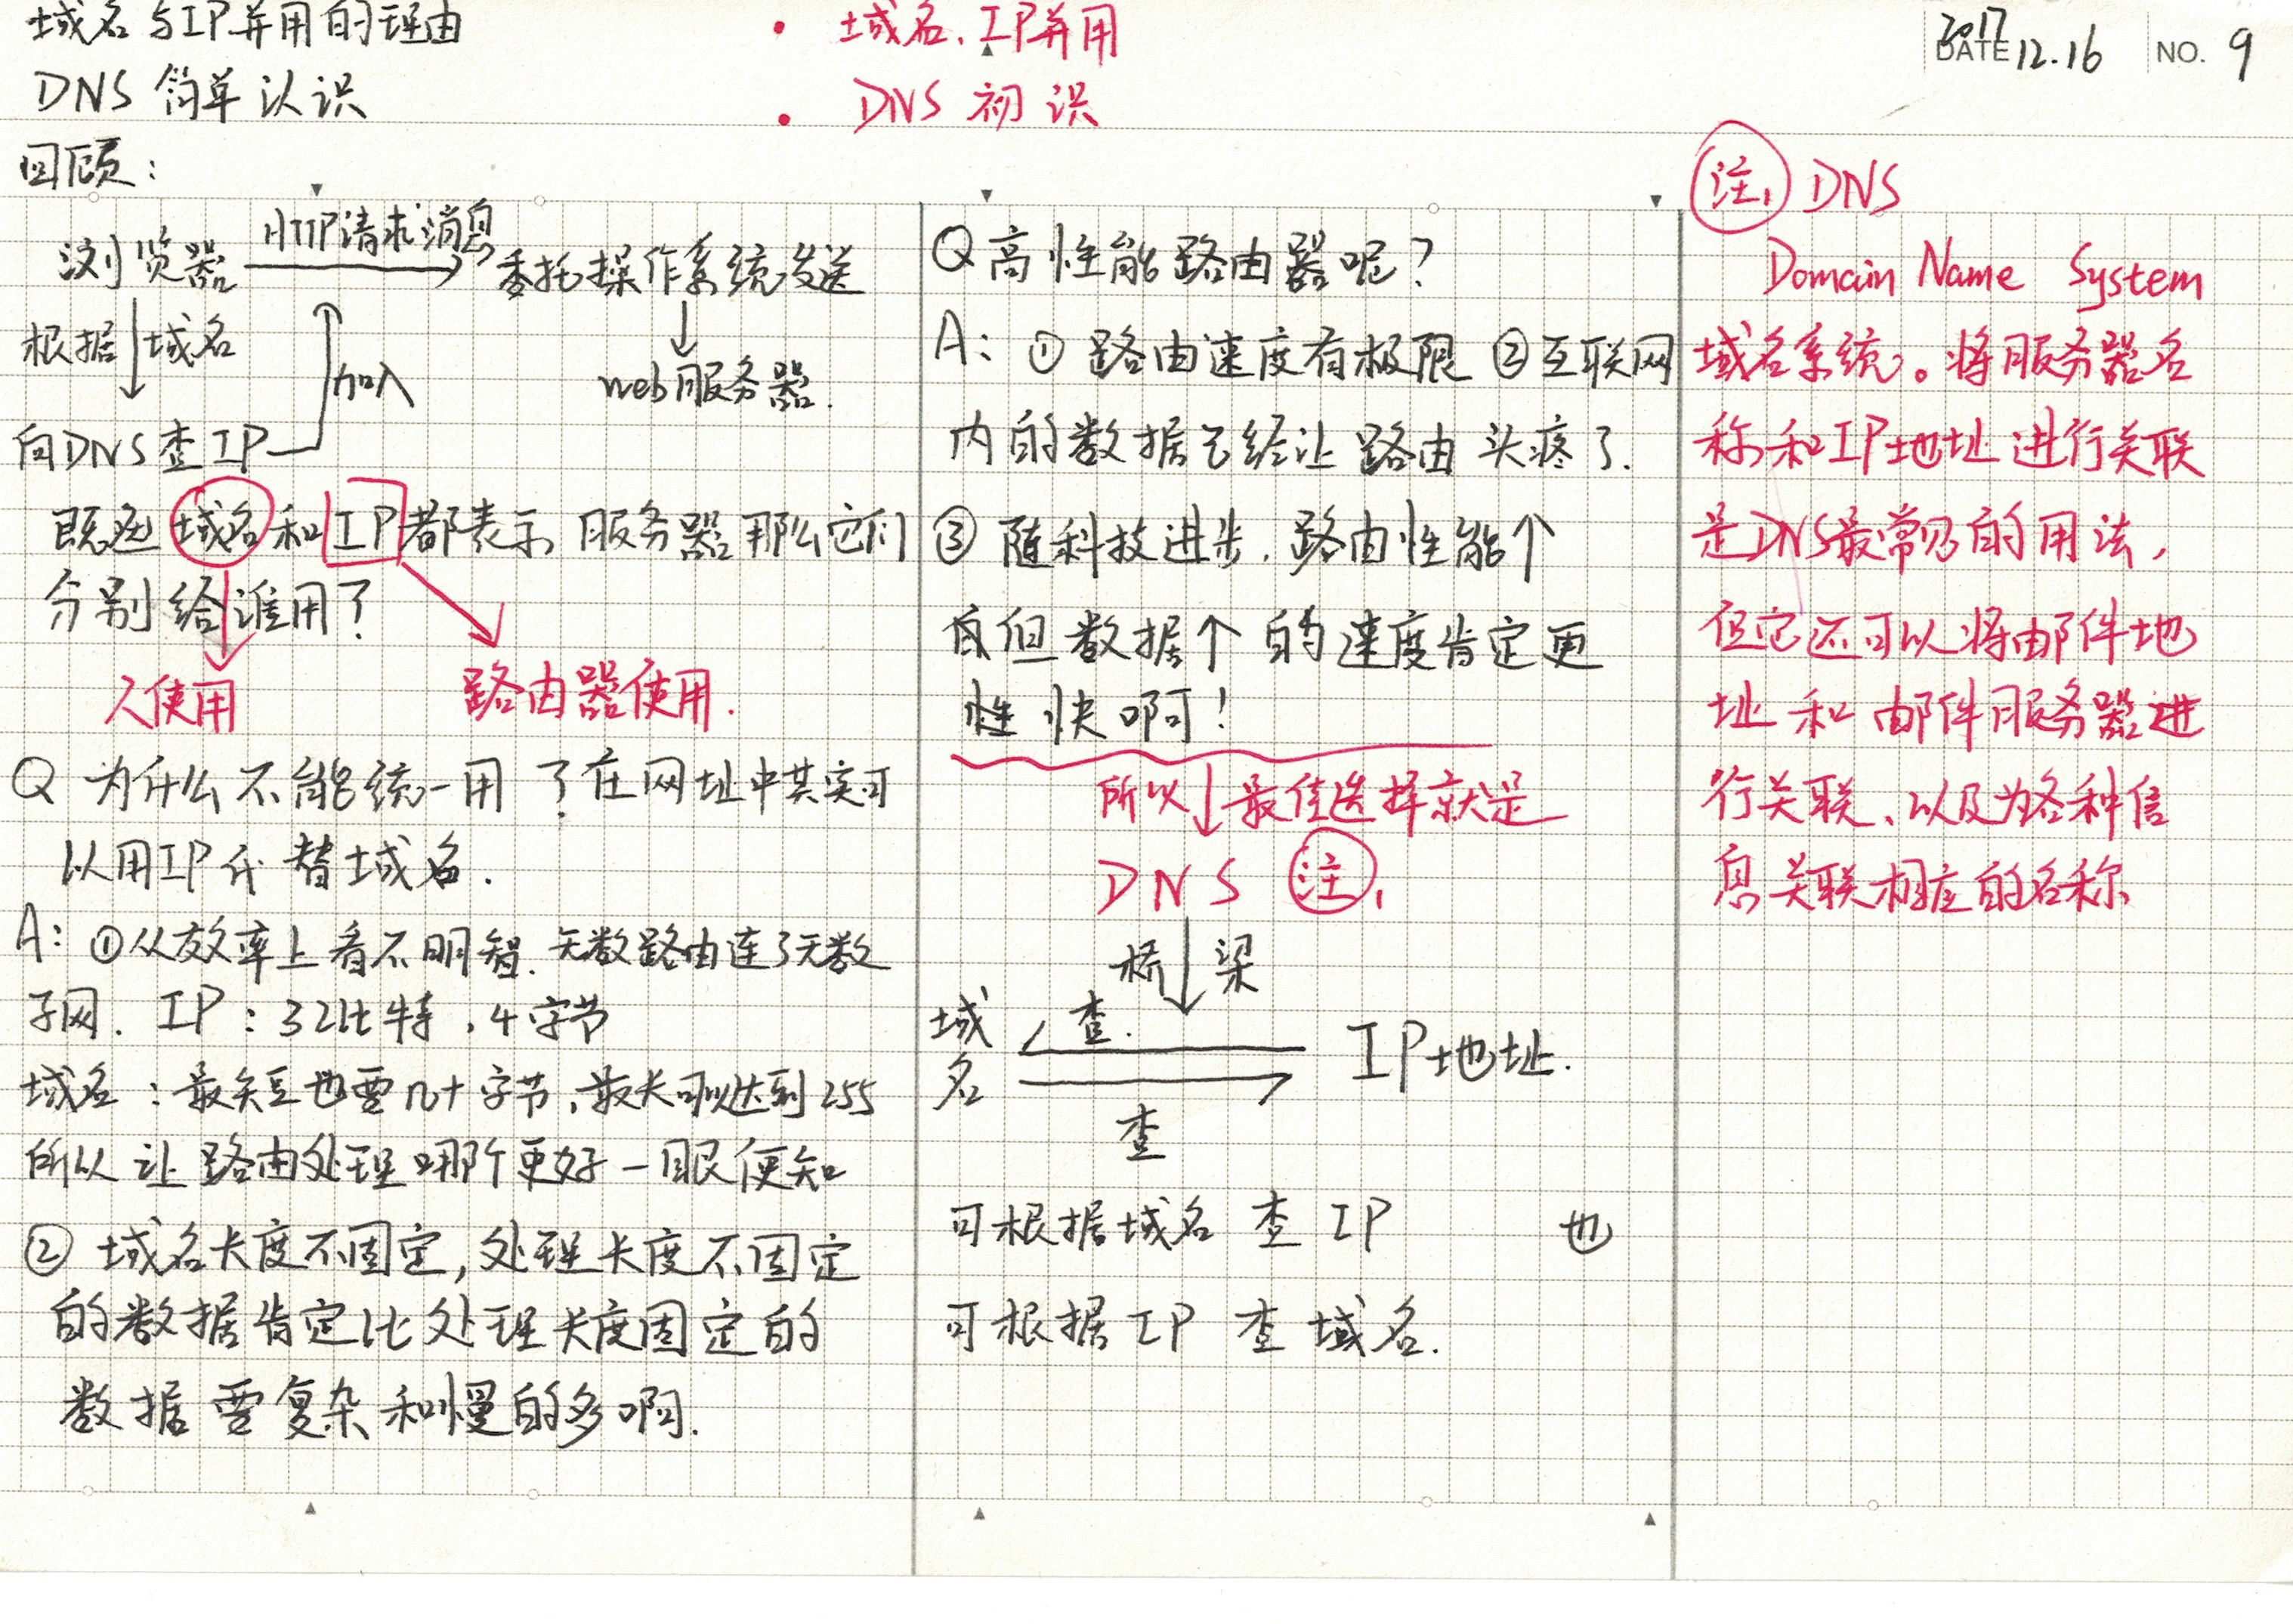 域名与IP并用的理由
DNS 简单认识
• 域名、IP并用
• DNS 初识
2017
DATE 12.16 NO. 9
回顾:
浏览器 HTTP请求消息 委托操作系统发送
根据 域名
加入
web服务器.
向DNS查IP
既然 域名 和 IP 都表示 服务器 那么它们
分别给谁用?
人使用 路由器使用.
Q 为什么不能统一用?在网址中其实可
以用IP代替域名.
A: ①从效率上看不明智. 无数路由连了无数
子网. IP: 32比特, 4字节
域名: 最短也要几十字节, 最长可以达到255
所以让路由处理哪个更好一眼便知
② 域名长度不固定, 处理长度不固定
的数据肯定比处理长度固定的
数据要复杂和慢的多啊.
Q 高性能路由器呢?
A: ① 路由速度有极限 ②互联网
内的数据已经让路由头疼了.
③ 随科技进步, 路由性能个
但数据个的速度肯定更
快啊!
所以 最佳选择就是
DNS 注1
桥 梁
域名 查. IP地址.
查
可根据域名 查 IP 也
可根据IP 查 域名.
注1 DNS
Domain Name System
域名系统。将服务器名
称和IP地址进行关联
是DNS最常见的用法,
但它还可以将邮件地
址和邮件服务器进
行关联、以及为各种信
息关联相应的名称